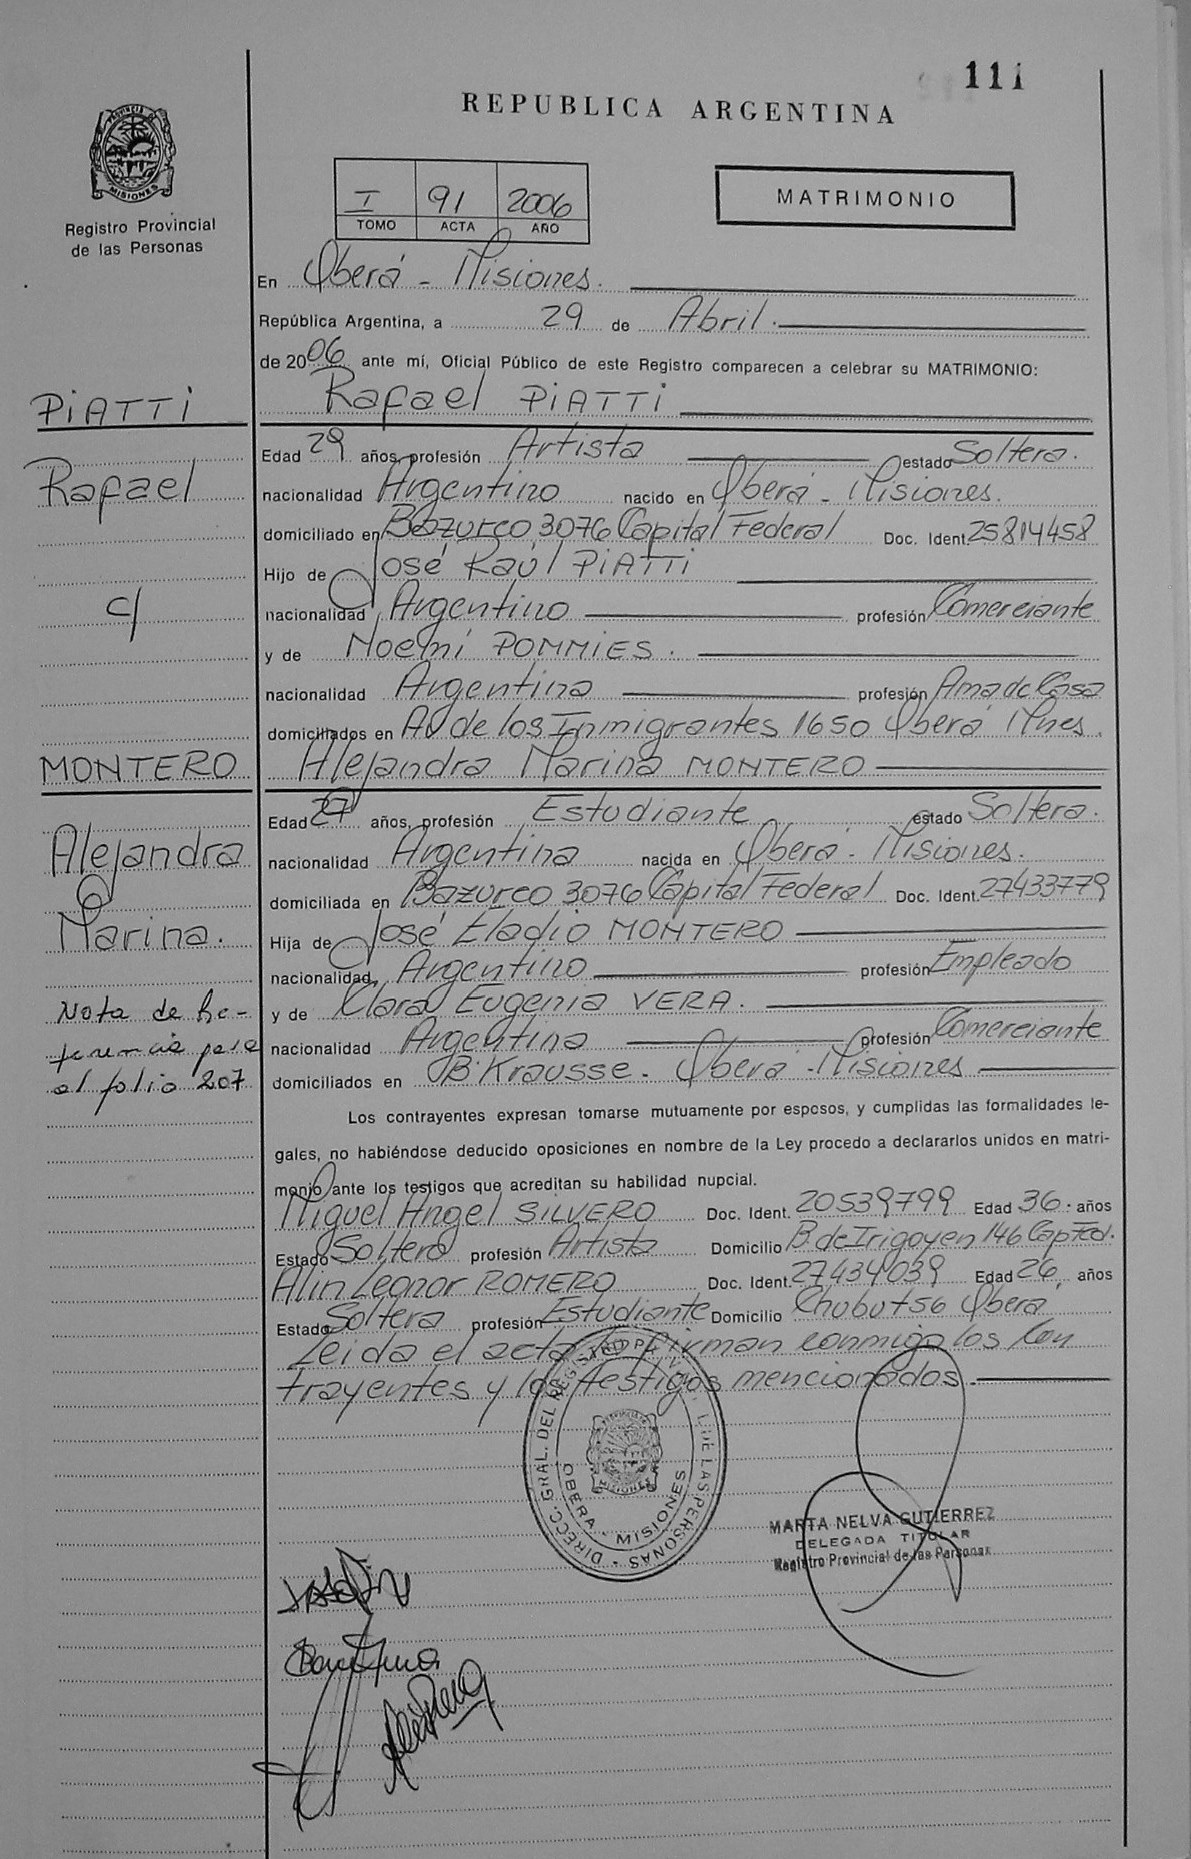 111
REPUBLICA ARGENTINA
PROVINCIA DE
MISIONES
Registro Provincial
de las Personas
I 91 2006
TOMO ACTA AÑO
MATRIMONIO
En Oberá - Misiones.
República Argentina, a 29 de Abril.
de 2006 ante mí, Oficial Público de este Registro comparecen a celebrar su MATRIMONIO:
PIATTI
Rafael
c/
MONTERO
Alejandra
Marina.
Nota de Re-
ferencia para
el folio 207
Rafael PIATTI
Edad 29 años, profesión Artista estado Soltero.
nacionalidad Argentino nacido en Oberá - Misiones.
domiciliado en Bazurco 3076 Capital Federal Doc. Ident. 25814458
Hijo de José Raúl PIATTI
nacionalidad Argentino profesión Comerciante
y de Noemí POMMIES.
nacionalidad Argentina profesión Ama de Casa
domiciliados en Av de los Inmigrantes 1650 Oberá Mnes.
Alejandra Marina MONTERO
Edad 27 años, profesión Estudiante estado Soltera.
nacionalidad Argentina nacida en Oberá - Misiones.
domiciliada en Bazurco 3076 Capital Federal Doc. Ident. 27433779
Hija de José Eladio MONTERO
nacionalidad Argentino profesión Empleado
y de Clara Eugenia VERA.
nacionalidad Argentina profesión Comerciante
domiciliados en B. Krausse - Oberá - Misiones
Los contrayentes expresan tomarse mutuamente por esposos, y cumplidas las formalidades le-
gales, no habiéndose deducido oposiciones en nombre de la Ley procedo a declararlos unidos en matri-
monio ante los testigos que acreditan su habilidad nupcial.
Miguel Angel SILVERO Doc. Ident. 20539799 Edad 36. años
Estado Soltero profesión Artista Domicilio B. de Irigoyen 146 Cap Fed.
Alin Leonor ROMERO Doc. Ident. 27434039 Edad 26 años
Estado Soltera profesión Estudiante Domicilio Chubut 56 Oberá
Leida el acta la firman conmigo los Con
trayentes y los testigos mencionados.
DIRECC. GRAL. DEL REGISTRO DE LAS PERSONAS
OBERA - MISIONES
MARTA NELVA GUTIERREZ
DELEGADA TITULAR
Registro Provincial de las Personas